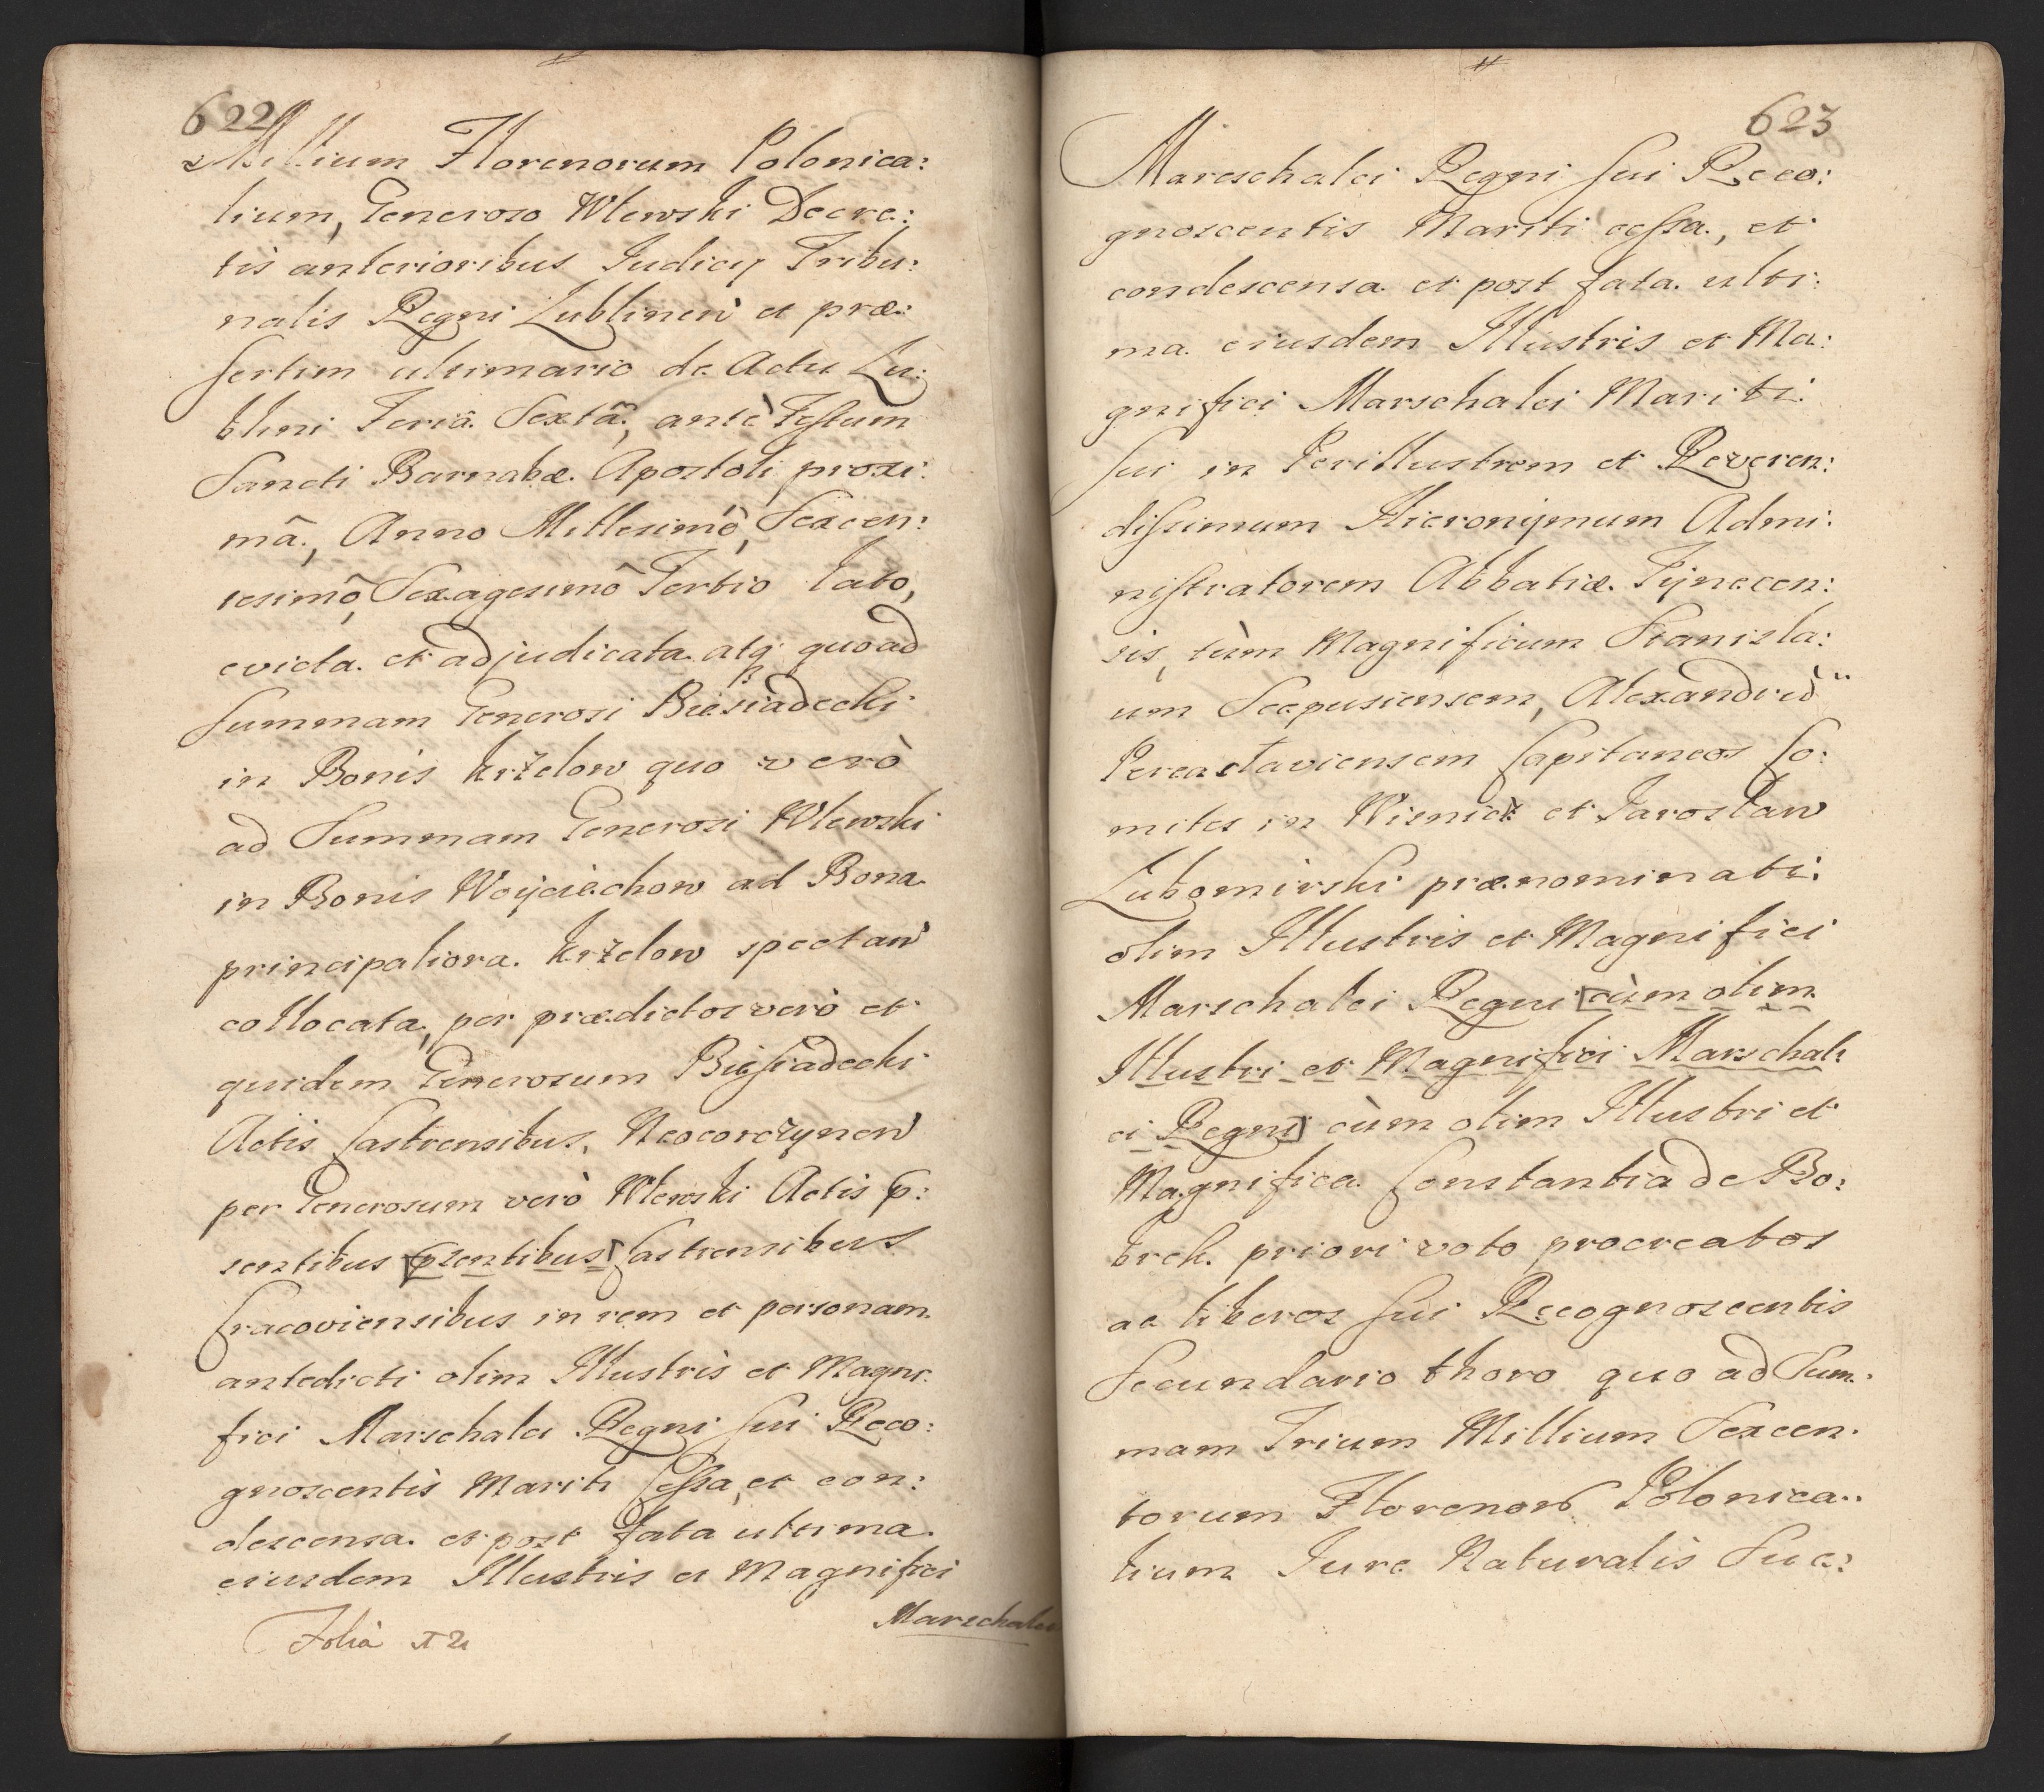 622
Millium Florenorum Polonica:
lium, Generoso Wlewski Decre:
tis anterioribus Judicij Tribu:
nalis Regni Lublinen̄ et præ:
sertim ultimario de Actu Lu:
blini Feriâ Sextâ, antè Festum
Sancti Barnabæ Apostoli proxi:
mâ, Anno Millesimô, Sexcen:
tesimô, Sexagesimô Tertio lato,
evicta et adjudicata atq; quoad
summam Generosi Biesiadecki
in Bonis Krzelow quo verò
ad Summam Generosi Wlewski
in Bonis Woyciechow ad Bona
principaliora Krzelow spectan̄
collocata, per prædictos verò et
quidem Generosum Biesiadecki
Actis Castrensibus, Neocorczynen̄
per Generosum verò Wlewski Actis p:
sentibus [psentibus] Castrensibus
Cracoviensibus in rem et personam
antedicti olim Illustris et Magni:
fici Marschalci Regni sui Reco:
gnoscentis Mariti Cessa, et con:
descensa et post fata ultima
eiusdem Illustris et Magnifici
Folia
Marschalci
623
Mareschalci Regni sui Reco:
gnoscentis Mariti cessa, et
condescensa et post fata ulti:
ma eiusdem Illustris et Ma:
gnifici Marschalci Mariti
sui in Perillustrem et Reveren:
dissimum Hieronymum Admi:
nistratorem Abbatiæ Tynecen:
sis, tùm Magnificum Stanisla:
um Scepusiensem, Alexandrū
Pereaslaviensem Capitaneos Co:
mites in Wisnicz et Jaroslaw
Lubomirski prænominati
olim Illustris et Magnifici
Marschalci Regni [cùm olim
Illustri et Magnifici Marschal:
ci Regni] cùm olim Illustri et
Magnifica Constantia de Bo:
brek priori voto procreatos
ac liberos sui Recognoscentis
Secundario thoro quo ad Sum:
mam Trium Millium Sexcen:
torum Florenorū Polonica:
lium Jure Naturalis Suc: